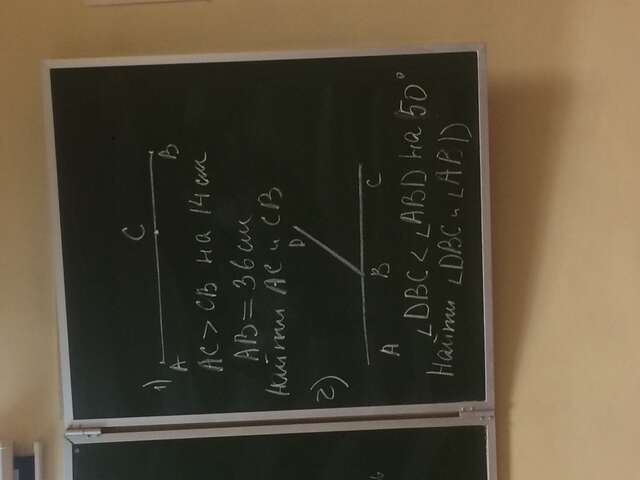 C
1)
A B
AC > CB на 14 см
AB = 36 см
Найти AC и CB
D
2)
A B C
∠DBC < ∠ABD на 50°
Найти ∠DBC и ∠ABD